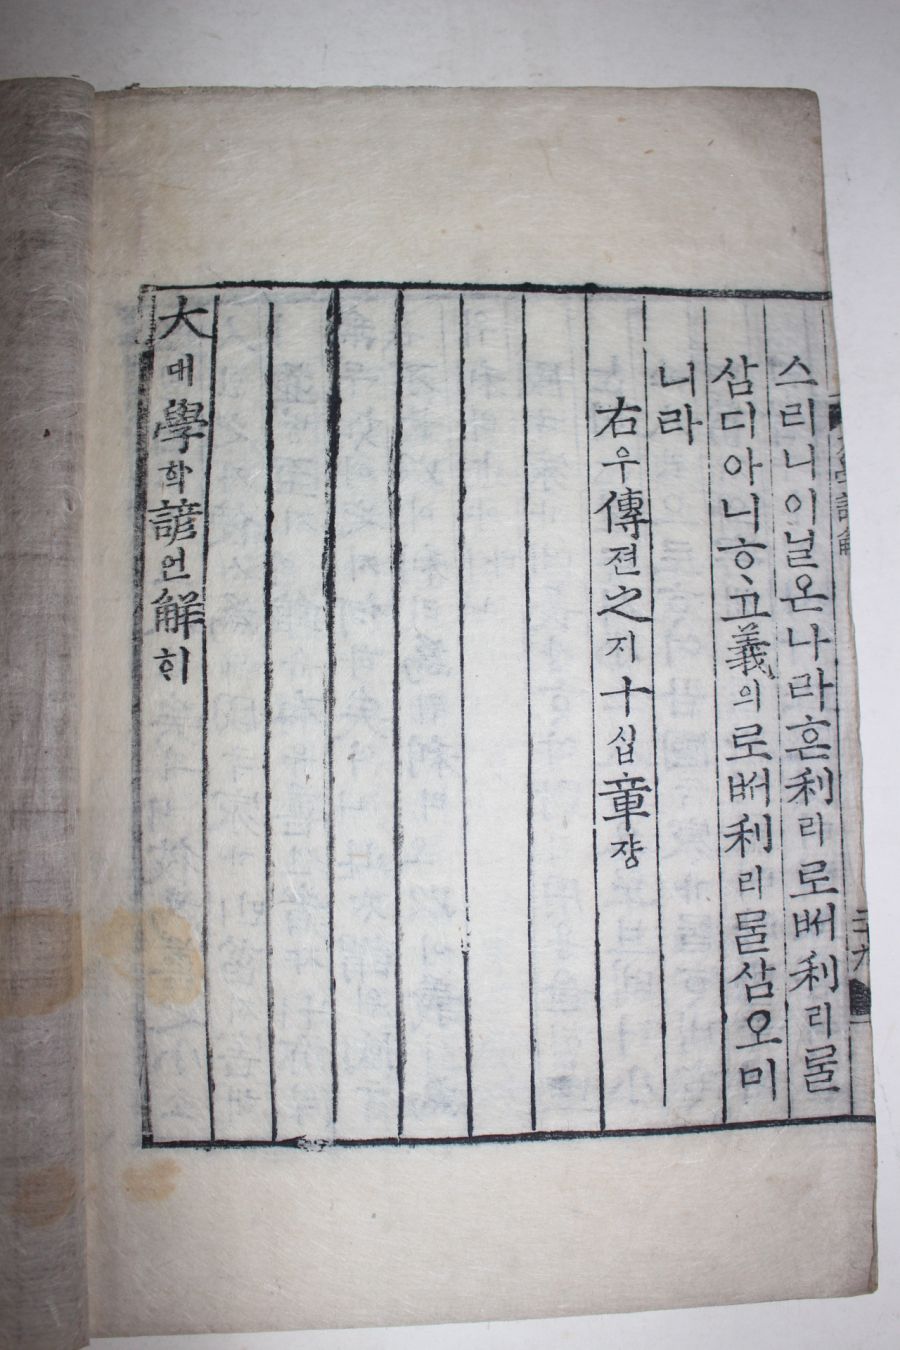 스리니이닐온나라흔利리로버利리믈
삼디아니ᄒᆞ고義의로버利리믈삼오미
니라
右우傳젼之지十십章쟝
大대學학諺언解ᄒᆡ